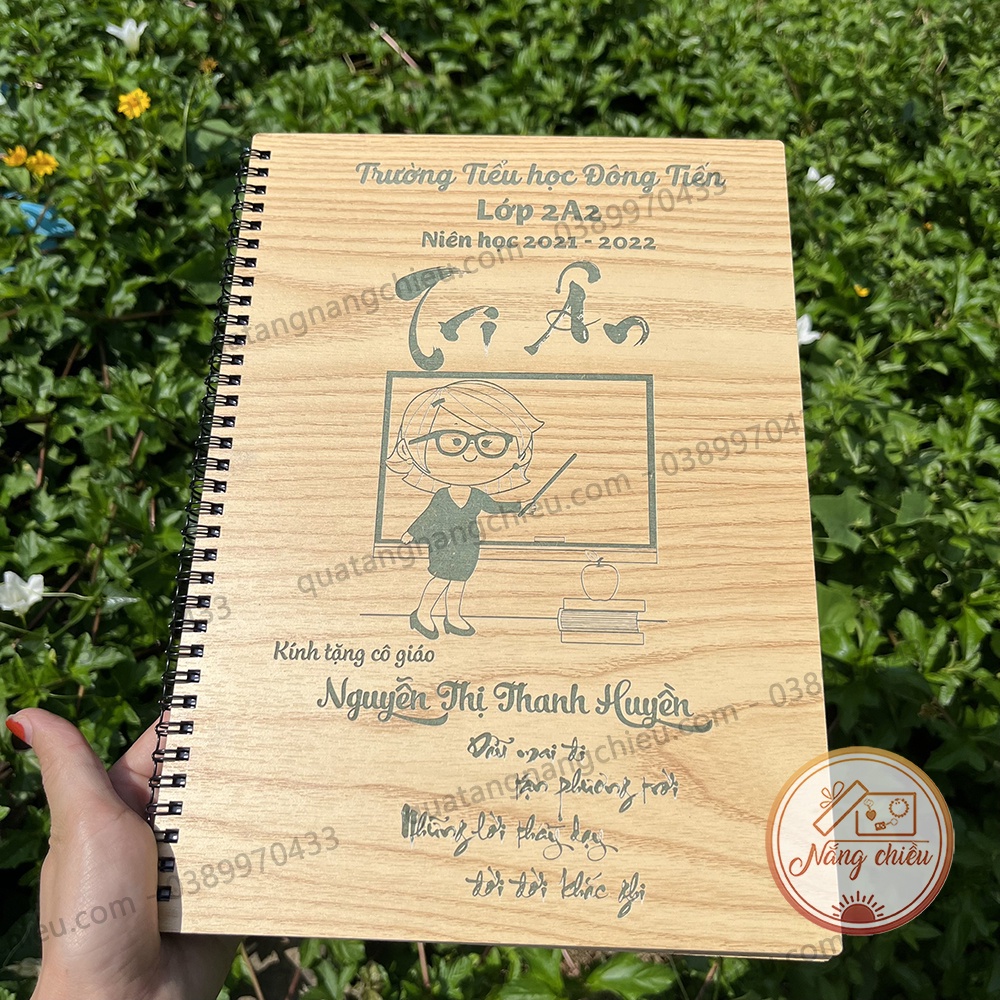 Trường Tiểu học Đông Tiến
Lớp 2A2
Niên học 2021 - 2022
Tri Ân
Kính tặng cô giáo
Nguyễn Thị Thanh Huyền
Dẫu mai đi
tận phương trời
Những lời thầy dạy
đời đời khắc ghi
Nắng chiều
quatangnangchieu.com - 0389970433
quatangnangchieu.com - 03899704
quatangnangchieu.com - 038
0389970433
eu.com - 0389970433
33
.com